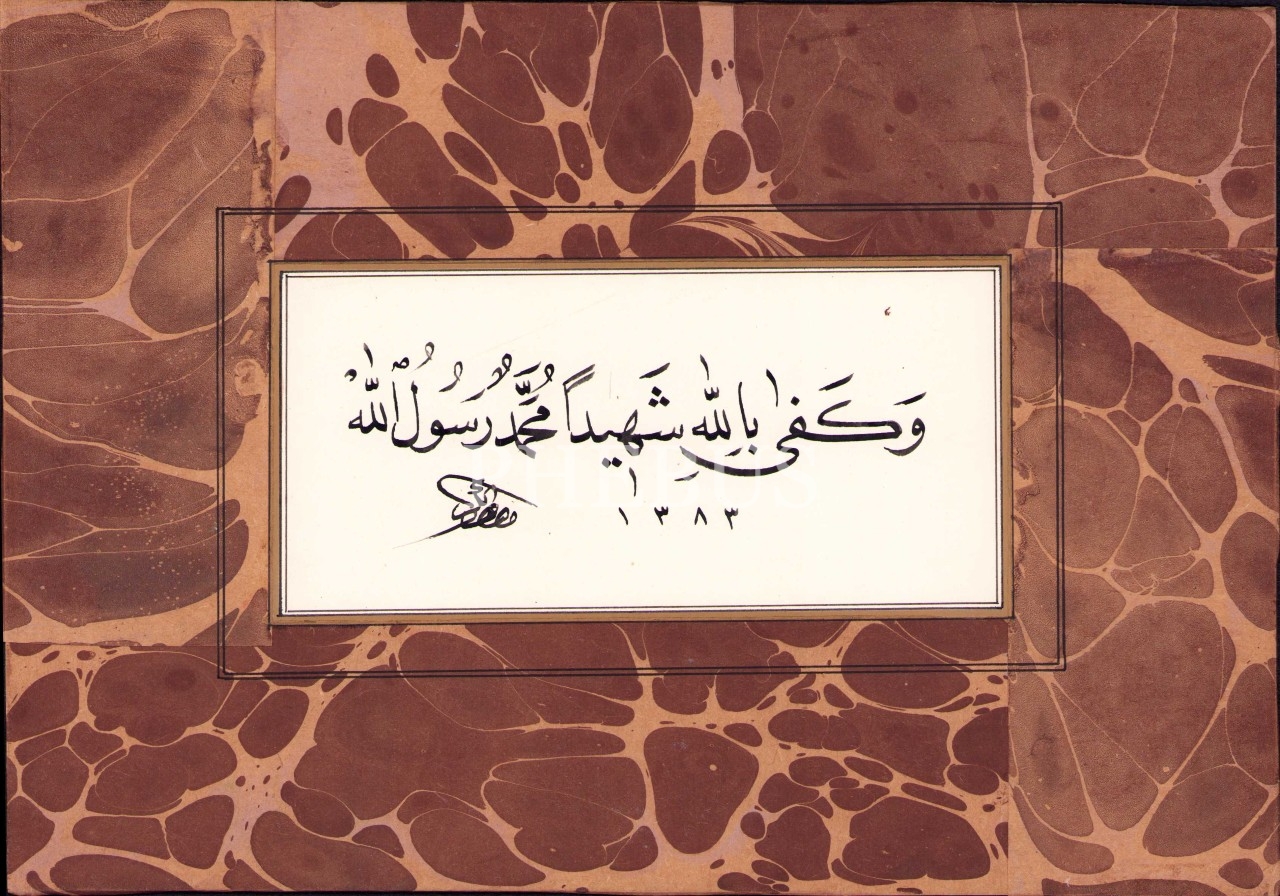 وَكَفىٰ بِاللّٰهِ شَهِيداً مُحَمَّدٌ رَسُولُ ٱللّٰهْ
١٣٨٣
PHEBUS